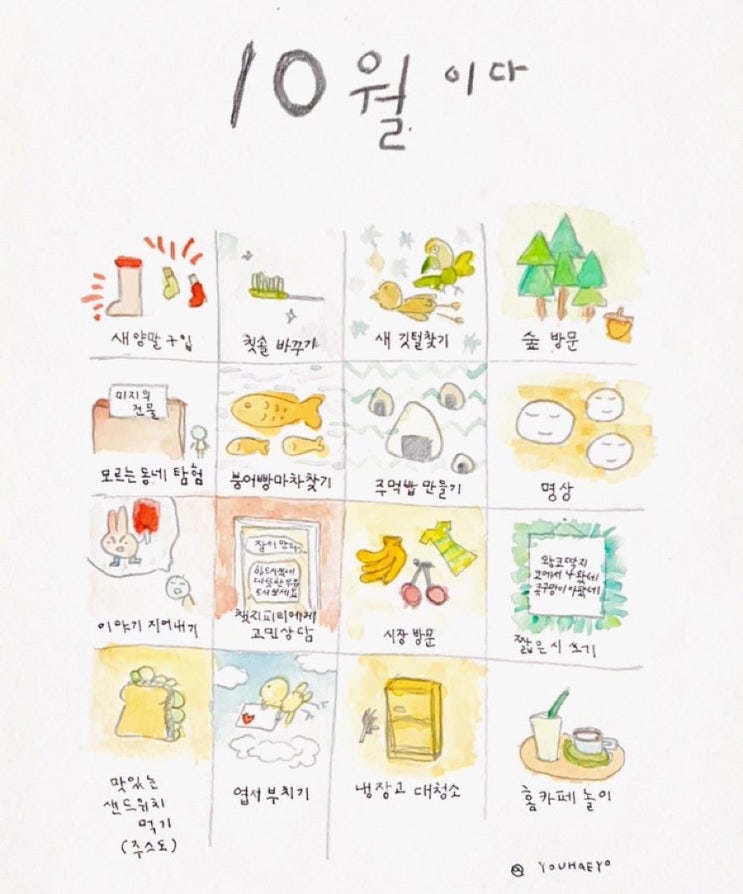 10월이다
새 양말 구입
칫솔 바꾸기
새 깃털찾기
숲 방문
미지의
건물
모르는 동네 탐험
붕어빵마차찾기
주먹밥 만들기
명상
이야기 지어내기
잠이 안와..
따뜻한 우유
드시겠세요
챗지피티에게
고민상담
시장 방문
왕코딱지
코에서 나왔네
콧구멍이 아팠네
짧은 시 쓰기
맛있는
샌드위치
먹기
(주스도)
엽서 부치기
냉장고 대청소
홈카페 놀이
@ YOUHAEYO